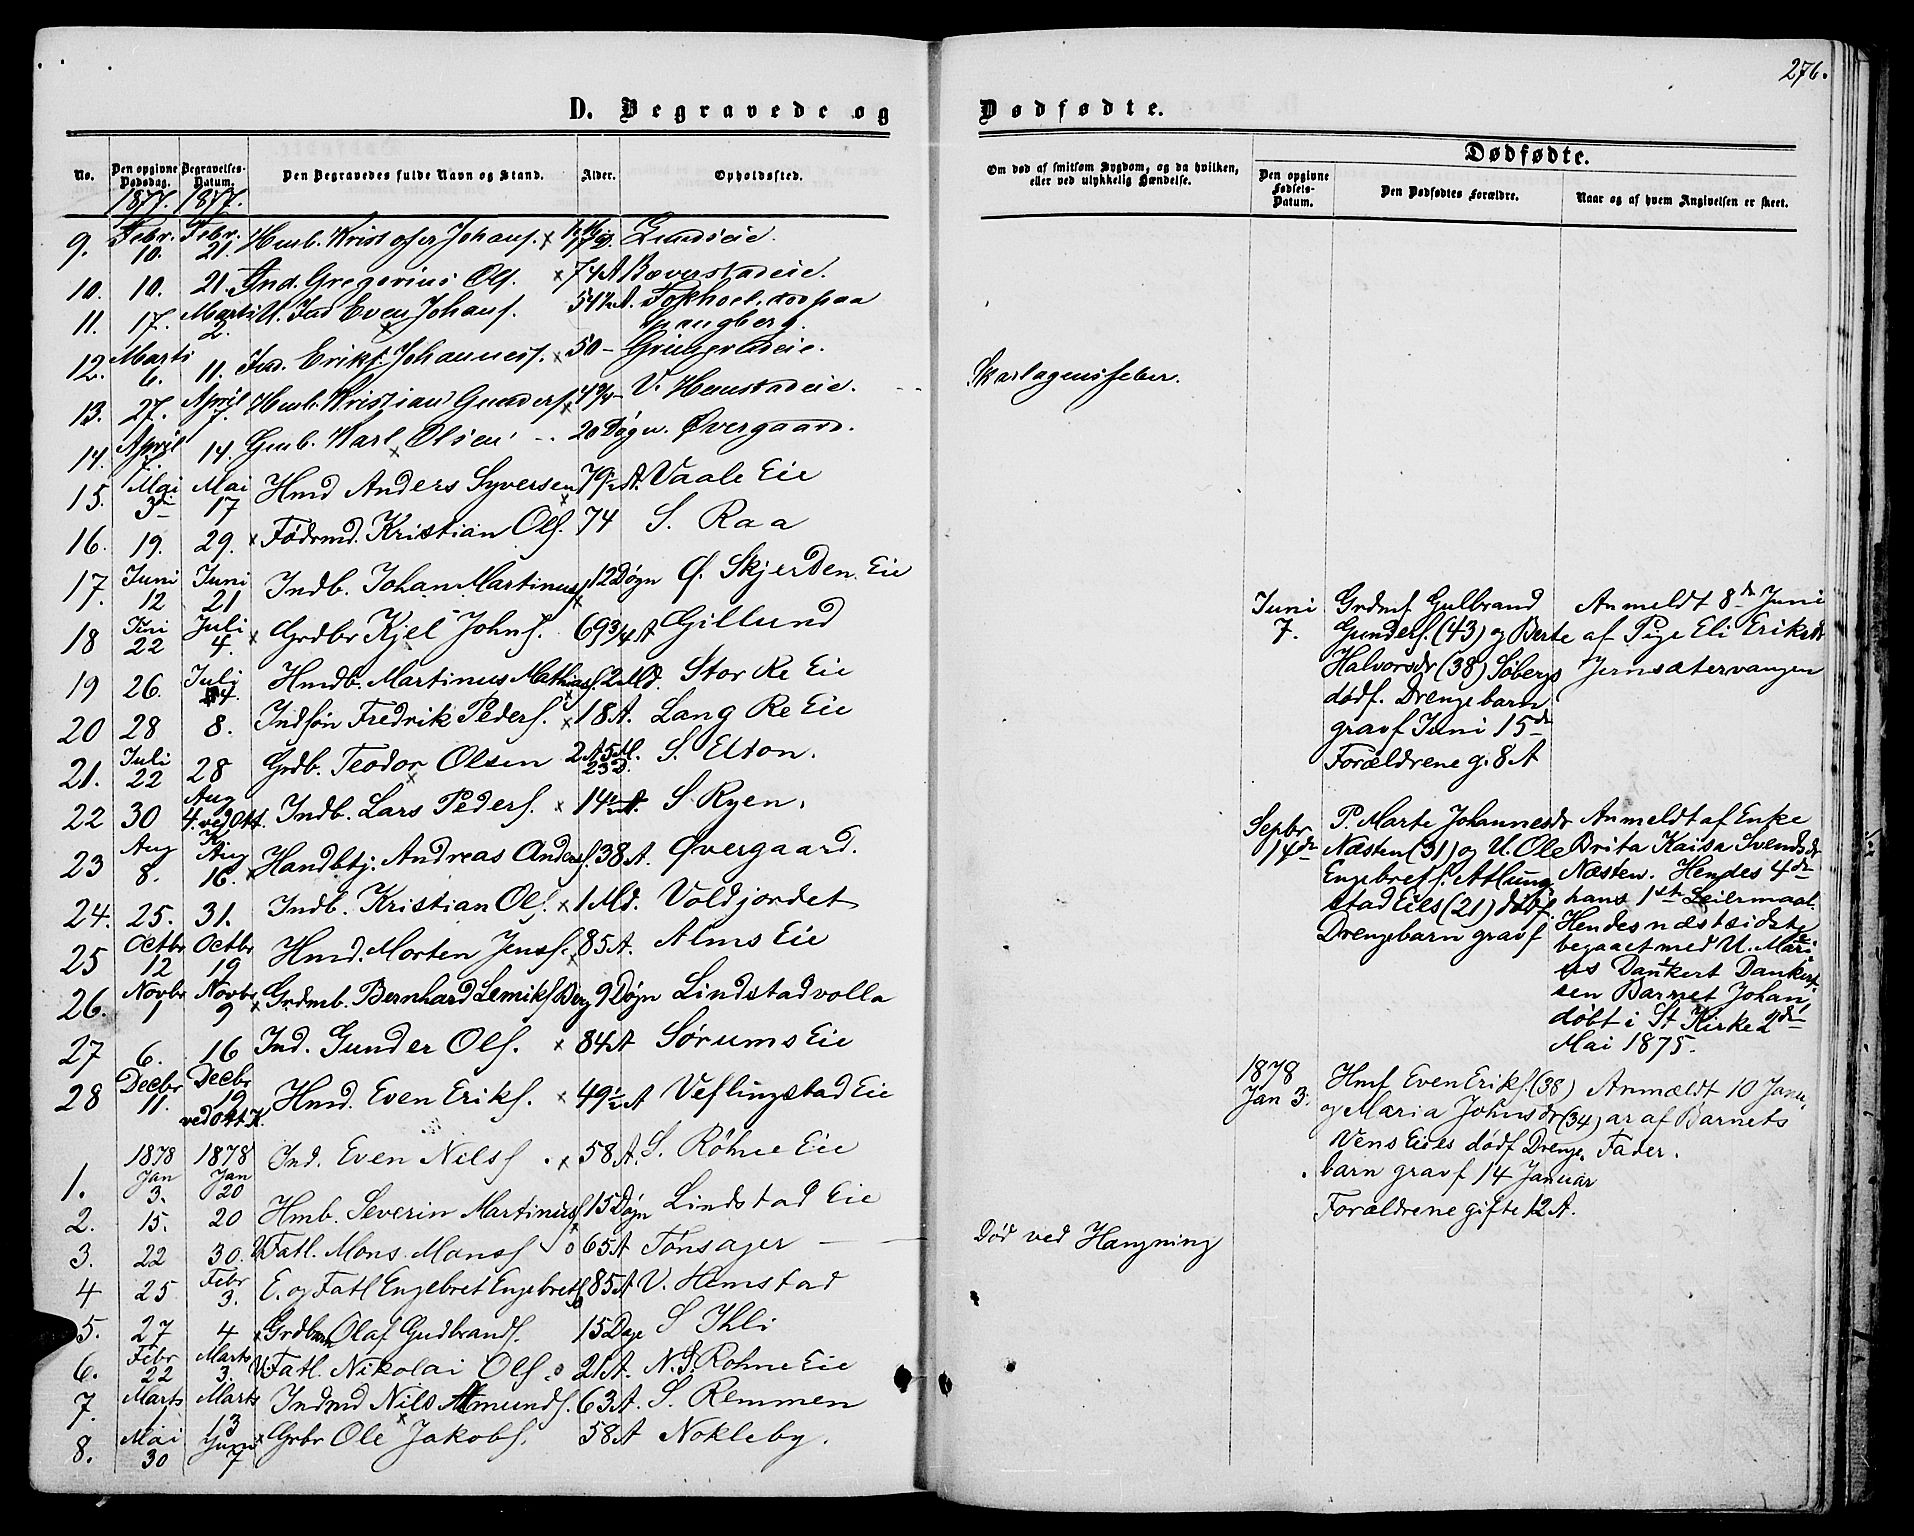 276.
D. Begravede og Dødfødte.
No. Den opgivne Dødsdag. Begravelses-Datum. Den Begravedes fulde Navn og Stand. Alder. Opholdssted.
Om død af smitsom Sygdom, og da hvilken, eller ved ulykkelig Hændelse.
Dødfødte.
Den opgivne Fødsels-Datum. Den Dødfødtes Forældre. Naar og af hvem Angivelsen er skeet.
1877. 1877.
9. Febr. 10. Febr. 21. Kristofer Johans. × Lundseie.
10. 10. 21. Ind. Gregorius Ols. × 74 A Bæverstadeie.
11. 17. Marts 2. U. Ind Even Johans. 54½ A. Fokhoel, død paa Spangberg.
12. Marts 6. 11. Ind. Eriks. Johanness. × 50 –
13. 27. April 7. Kristian Gunders. × V. Hemstadeie.
14. April 7. 14. Gmb. Karl Olsen 20 Døgn. Øvergaard.
15. Mai 3die Mai 17 Hmd Anders Syversen × 79½ A. Vaale Eie
16. 19. 29. × Fødrmd. Kristian Ols. 74 S. Raa
17. Juni 12 Juni 21 Indb. Johan Martinuss. × 12 Døgn Ø. Skjerden Eie
18 Juni 22 Juli 4. × Grdbr Kjel Johns. 69¾ A Gillund
19 26. Juli 4. Hmdb. Martinus Mathiass. × 2 Md. Stor Re Eie
20 28 8. Indsøn Fredrik Peders. × 18 A. Lang Re Eie
21. Juli 22 28 Grdb. Teodor Olsen × 2 A 5 M. 23 D. S. Elton.
22 30 Aug 4. ved Ott. K. Indb. Lars Peders. × 14½ A. S Ryen.
23 Aug 8. Aug 16. × Handbtj. Andreas Anders. 38 A. Øvergaard.
24. 25. 31. Indb. Kristian Ols. × 1 Md. Voldjordet
25 Octbr 12 Octbr 19 Hmd. Morten Jenss. × 85 A. Alms Eie
26. Novbr 1 Novbr 9 × Grdmb. Bernhard Lemiks Berg 9 Døgn Lindstadvolla
27 6. 16 Ind. Gunder Ols. × 84 A Sørums Eie
28 Decbr 11. Decbr 19 ved Ott K. Hmd. Even Eriks. × 49½ A Veflingstad Eie
1878 1878
1. Jan 3. Jan 20 Ind. Even Nilss. × 58 A. S. Røhne Eie
2. 15. 20 Hmb. Severin Martinuss. × 15 Døgn Lindstad Eie
3. 22 30. U. Fatl. Mons Monss. o 65 A Tønsager –
4 25 Febr 3. E. og Fatl Engebret Engebrets. o 85 A V. Hemstad
5. 27 4 × Grdbmn Olaf Gudbrands. 15 Dage S Ihli
6. Febr 22 Marts 3. U. Fatl. Nikolai Ols. o 21 A. N. S. Rohne Eie
7 Marts 1 Marts 13 Indmd Nils Amunds. × 63 A. S. Remmen
8. Mai 30 Juni 7 × Grbr Ole Jakobs. 58 A Nokleby.
Skarlagensfeber.
Død ved Hængning
Juni 7. Grdmf Gulbrand
Gunders. (43) og Berte
Halvorsdr (38) Søbergs
dødf. Drengebarn
gravf Juni 15de
Forældrene g. 8 A
Anmeldt 8de Juni
af Pige Eli Eriksdr
Jernsætervangen
Sepbr 14de P. Marte Johannesdr
Næsten (31) og U. Ole
Engebrets. Atlung-
stad Eies (21) dødf.
Drengebarn gravf
Anmeldt af Enke
Brita Kaisa Svendsdr
Næsten. Hendes 4de
hans 1ste Leiermaal.
Hendes næstsidste
begaaet med U. Mari-
us Dankert Dankert-
sen Barnet Johan,
døbt i St. Kirke 2den
Mai 1875.
1878
Jan 3. Hmf Even Eriks. (38)
og Maria Johnsdr (34)
Vens Eies dødf Drenge-
barn gravf 14 Januar
Forældrene gifte 12 A.
Anmeldt 10 Janu-
ar af Barnets
Fader.